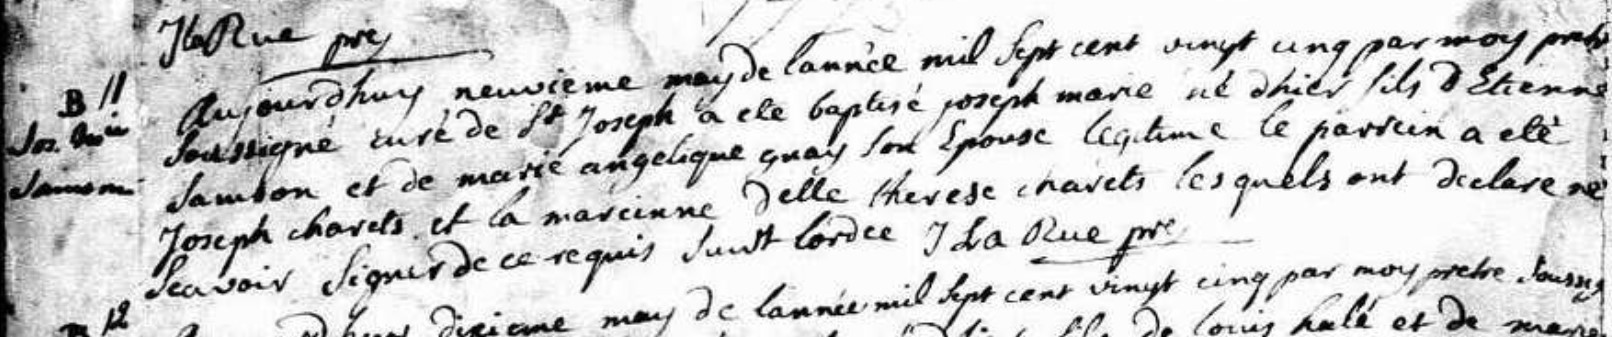 J La Rue pre
B 11
Jos. Mrie
Samson
Aujourdhuy neuvieme may de lannée mil sept cent vingt cinq par moy pretre
soussigné curé de St Joseph a ete baptisé joseph marie né dhier fils d Etienne
Samson et de marie angelique guay son Epouse legitime le parrein a eté
Joseph charets et la mareinne Delle therese charets lesquels ont declare ne
scavoir signer de ce requis suivt lordce J La Rue pre
12
dixieme may de lannée mil sept cent vingt cinq par moy pretre soussig
fils de louis halé et de marie